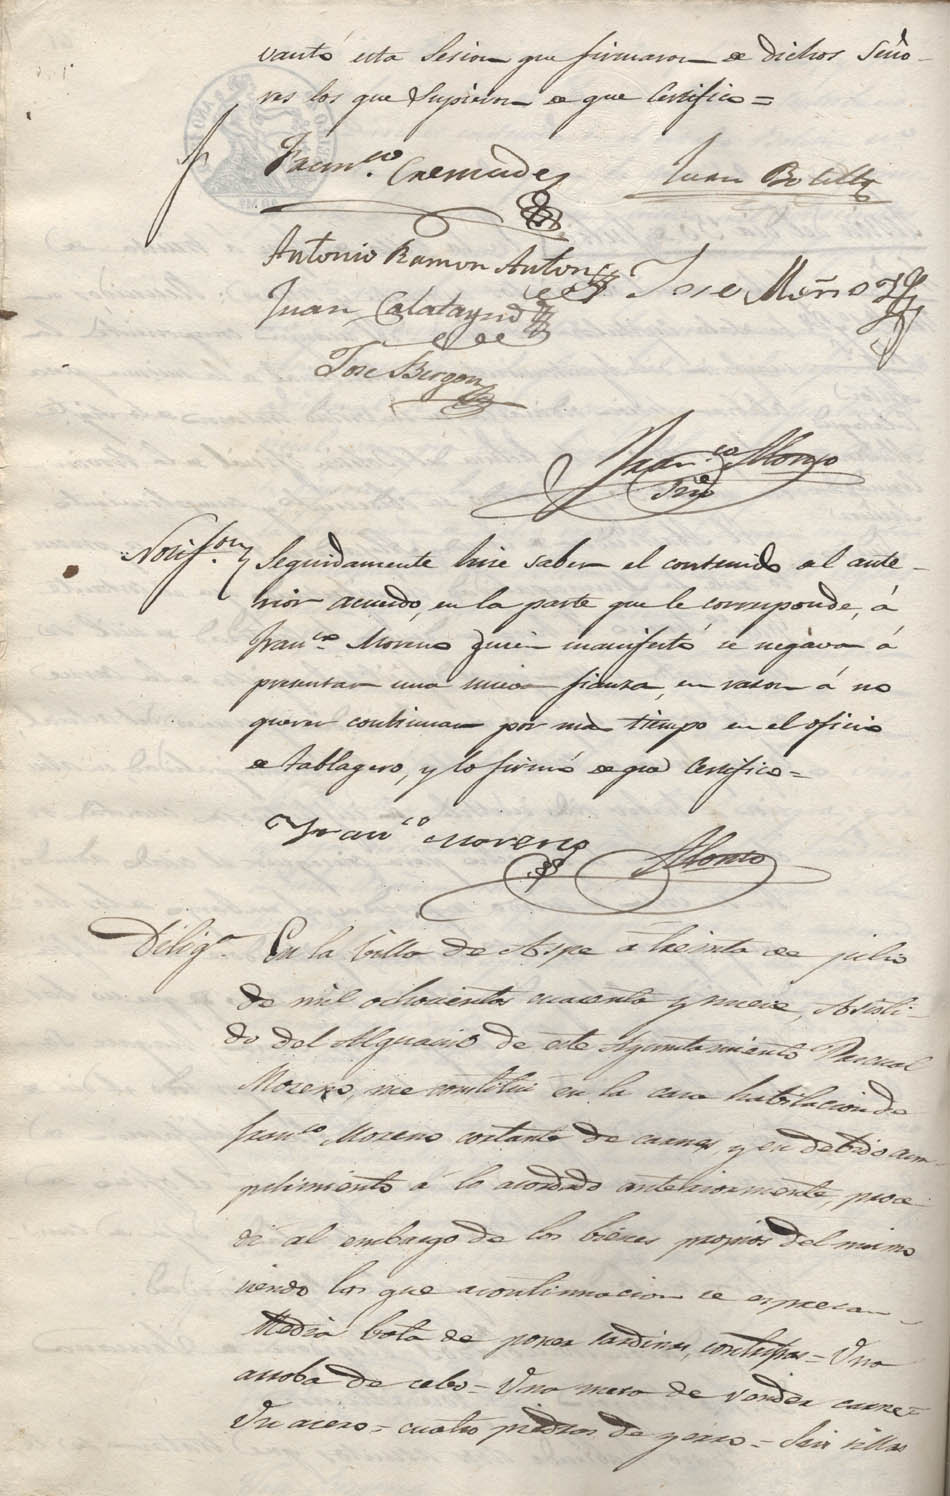 vantó esta Sesion que firmaron de dichos Seño-
res los que Supieron de que Certifico =
Franco. Cremades
Juan Botella
Antonio Ramon Anton
Jose Miño
Juan Calatayud
Jose Burgon
Franco. Alonso
Srio
Notifson. Seguidamente hice saber el contenido al ante-
rior acuerdo, en la parte que le corresponde, á
Franco. Moreno quien manifestó se negava á
presentar una nueva fianza, en razon á no
querer continuar por mas tiempo en el oficio
de tablagero, y lo firmó de que Certifico =
Franco Moreno
Alonso
Diliga. En la Villa de Aspe á treinta de julio
de mil ochocientos cuarenta y nueve, Asisti-
do del Alguacil de este Ayuntamiento Pascual
Moreno, me constitui en la casa habitacion de
Franco. Moreno cortante de carnes, y en debido cum-
plimiento á lo acordado anteriormente, proce-
di al embargo de los bienes propios del mismo
siendo los que acontinuacion se espresan
Media bota de poner sardinas, con tripas = Una
arroba de cebo = Una mesa de vender carne =
Un acero = cuatro piedras de yerro = Seis sillas